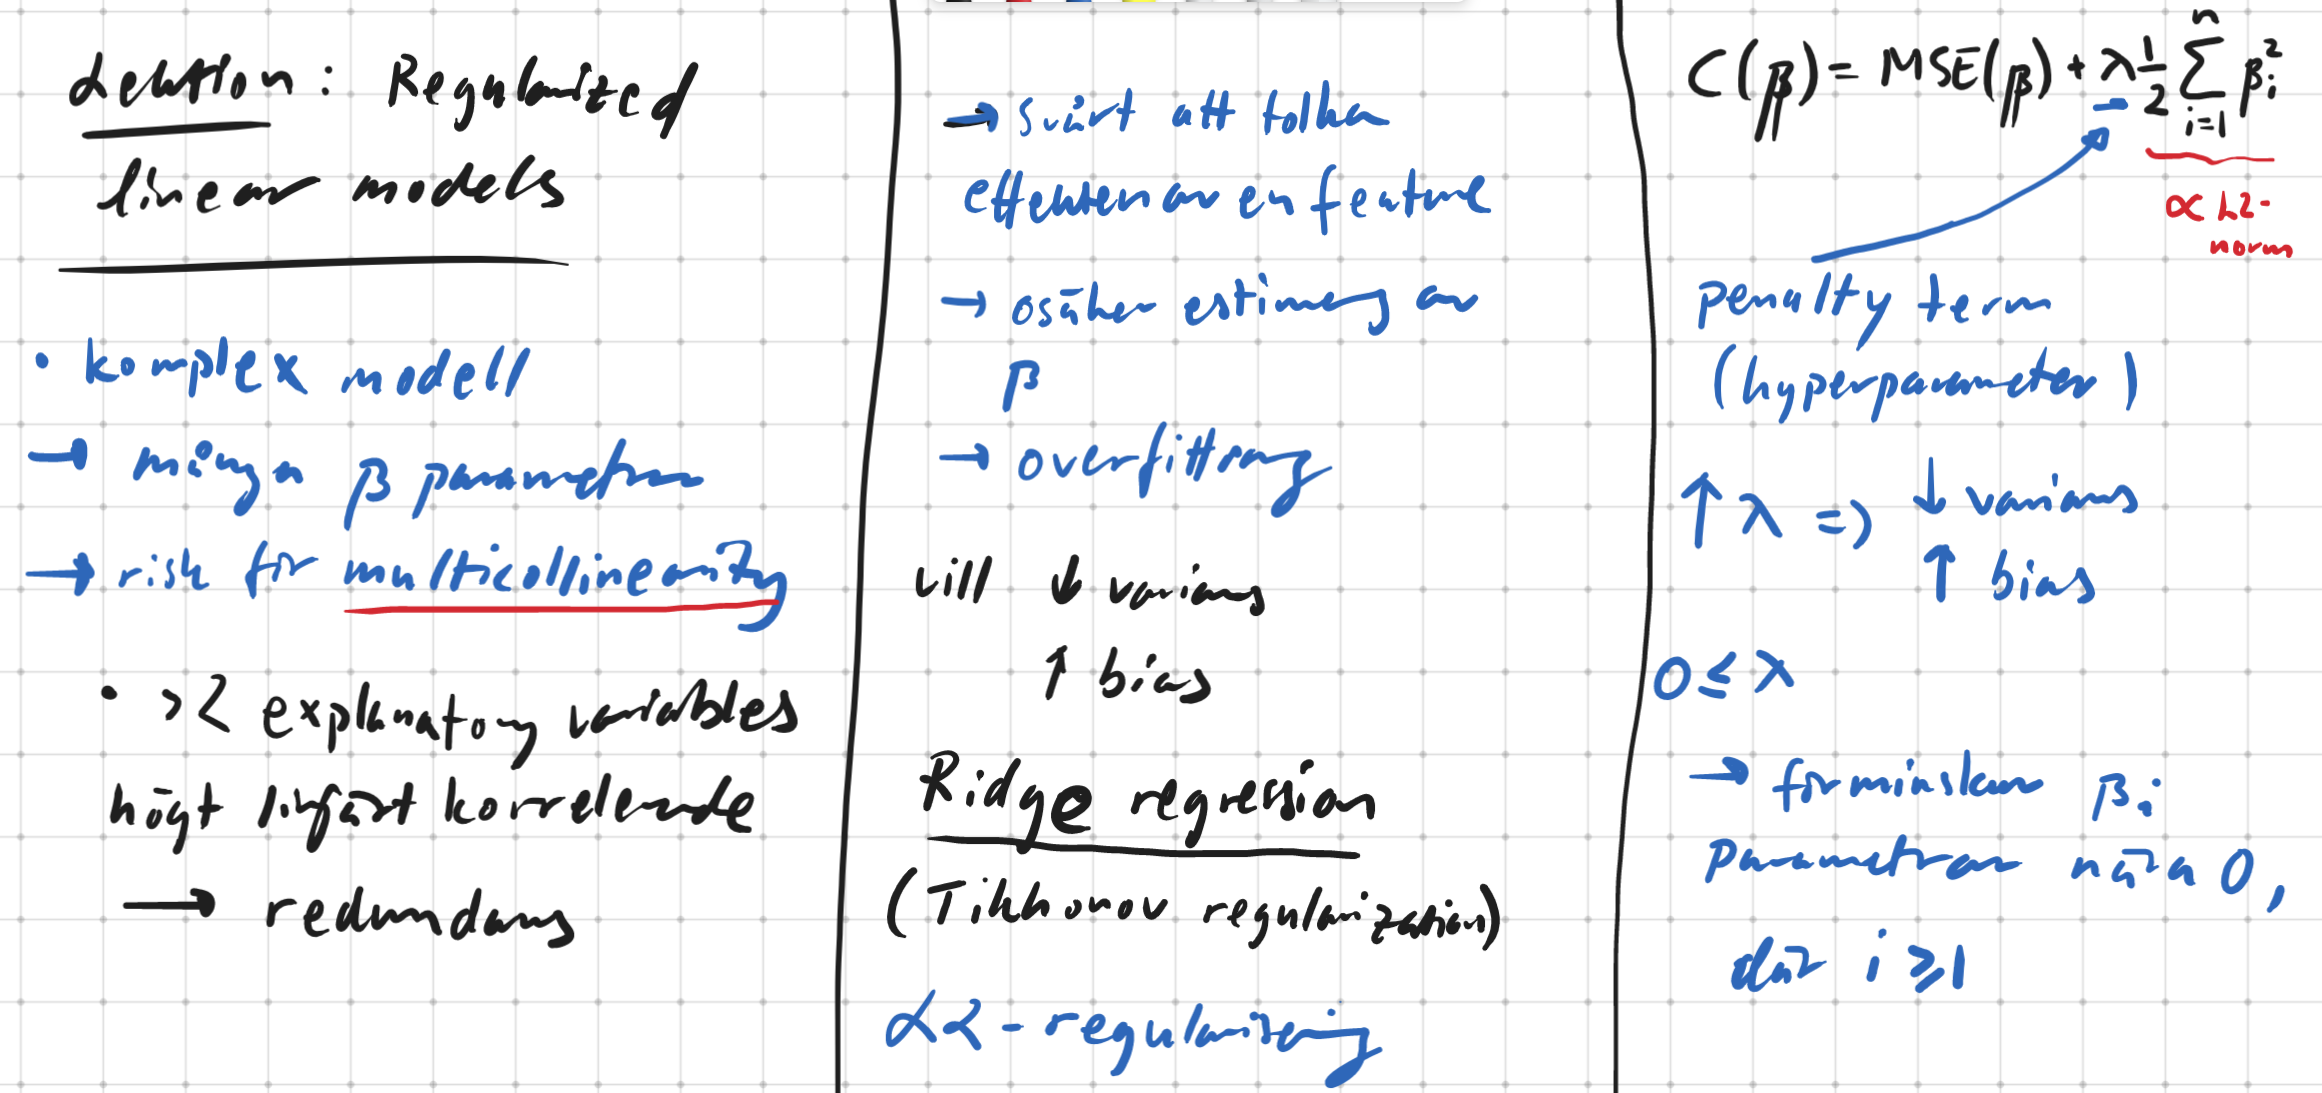 Lektion: Regularized
linear models
• komplex modell
→ många β parametrar
→ risk för multicollinearity
• >2 explanatory variables
högt linjärt korrelerade
→ redundans
→ svårt att tolka
effekten av en feature
→ osäker estimering av
β
→ overfitting
vill ↓ varians
↑ bias
Ridge regression
(Tikhonov regularization)
L2-regularisering
C(β) = MSE(β) + λ 1/2 Σ_{i=1}^{n} β_i^2
∝ L2-
norm
penalty term
(hyperparameter)
↑ λ => ↓ varians
↑ bias
0 ≤ λ
→ förminskar β_i
parametrar nära 0,
där i ≥ 1